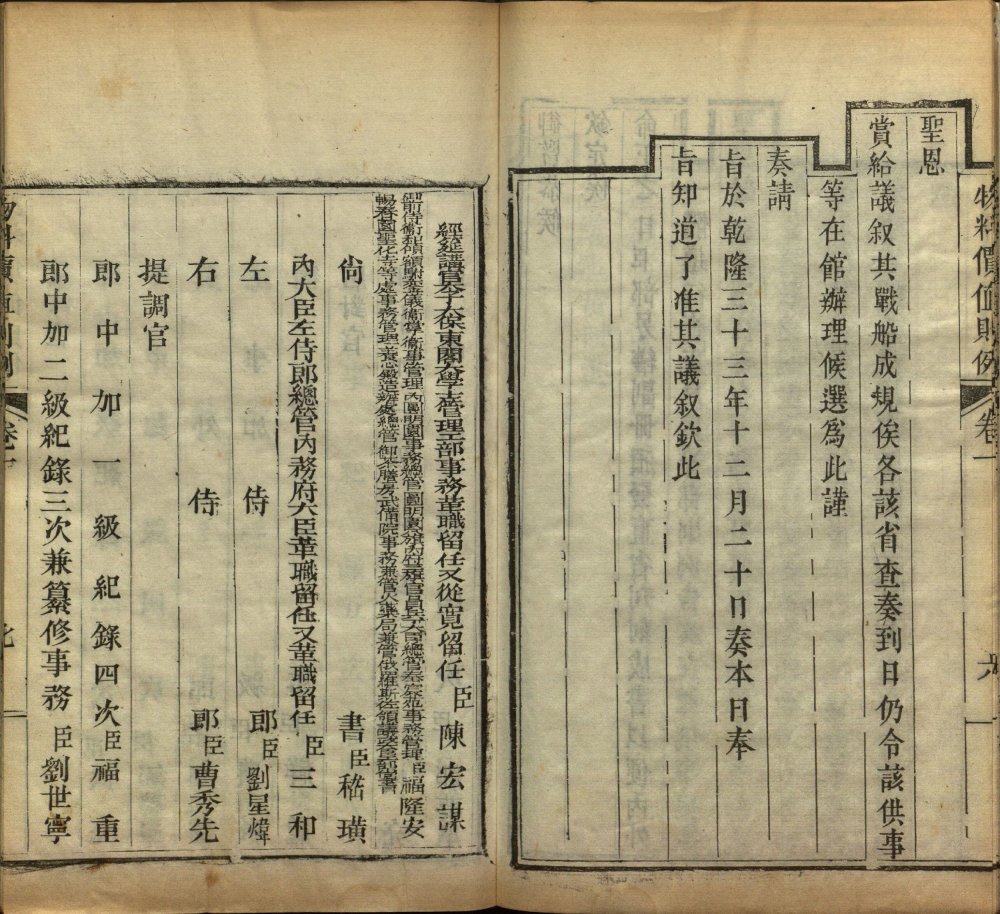 物料價值則例 卷一
聖恩
賞給議叙其戰船成規俟各該省查奏到日仍令該供事
等在館辦理候選爲此謹
奏請
旨於乾隆三十三年十二月二十日奏本日奉
旨知道了准其議叙欽此
經筵講官太子太保東閣大學士管理工部事務革職留任又從寬留任臣陳宏謀
尙書臣嵇璜
內大臣左侍郎總管內務府大臣革職留任又革職留任臣三和
左侍郎臣劉星煒
右侍郎臣曹秀先
提調官
郎中加一級紀錄四次臣福重
郎中加二級紀錄三次兼纂修事務臣劉世寧
物料價值則例 卷一